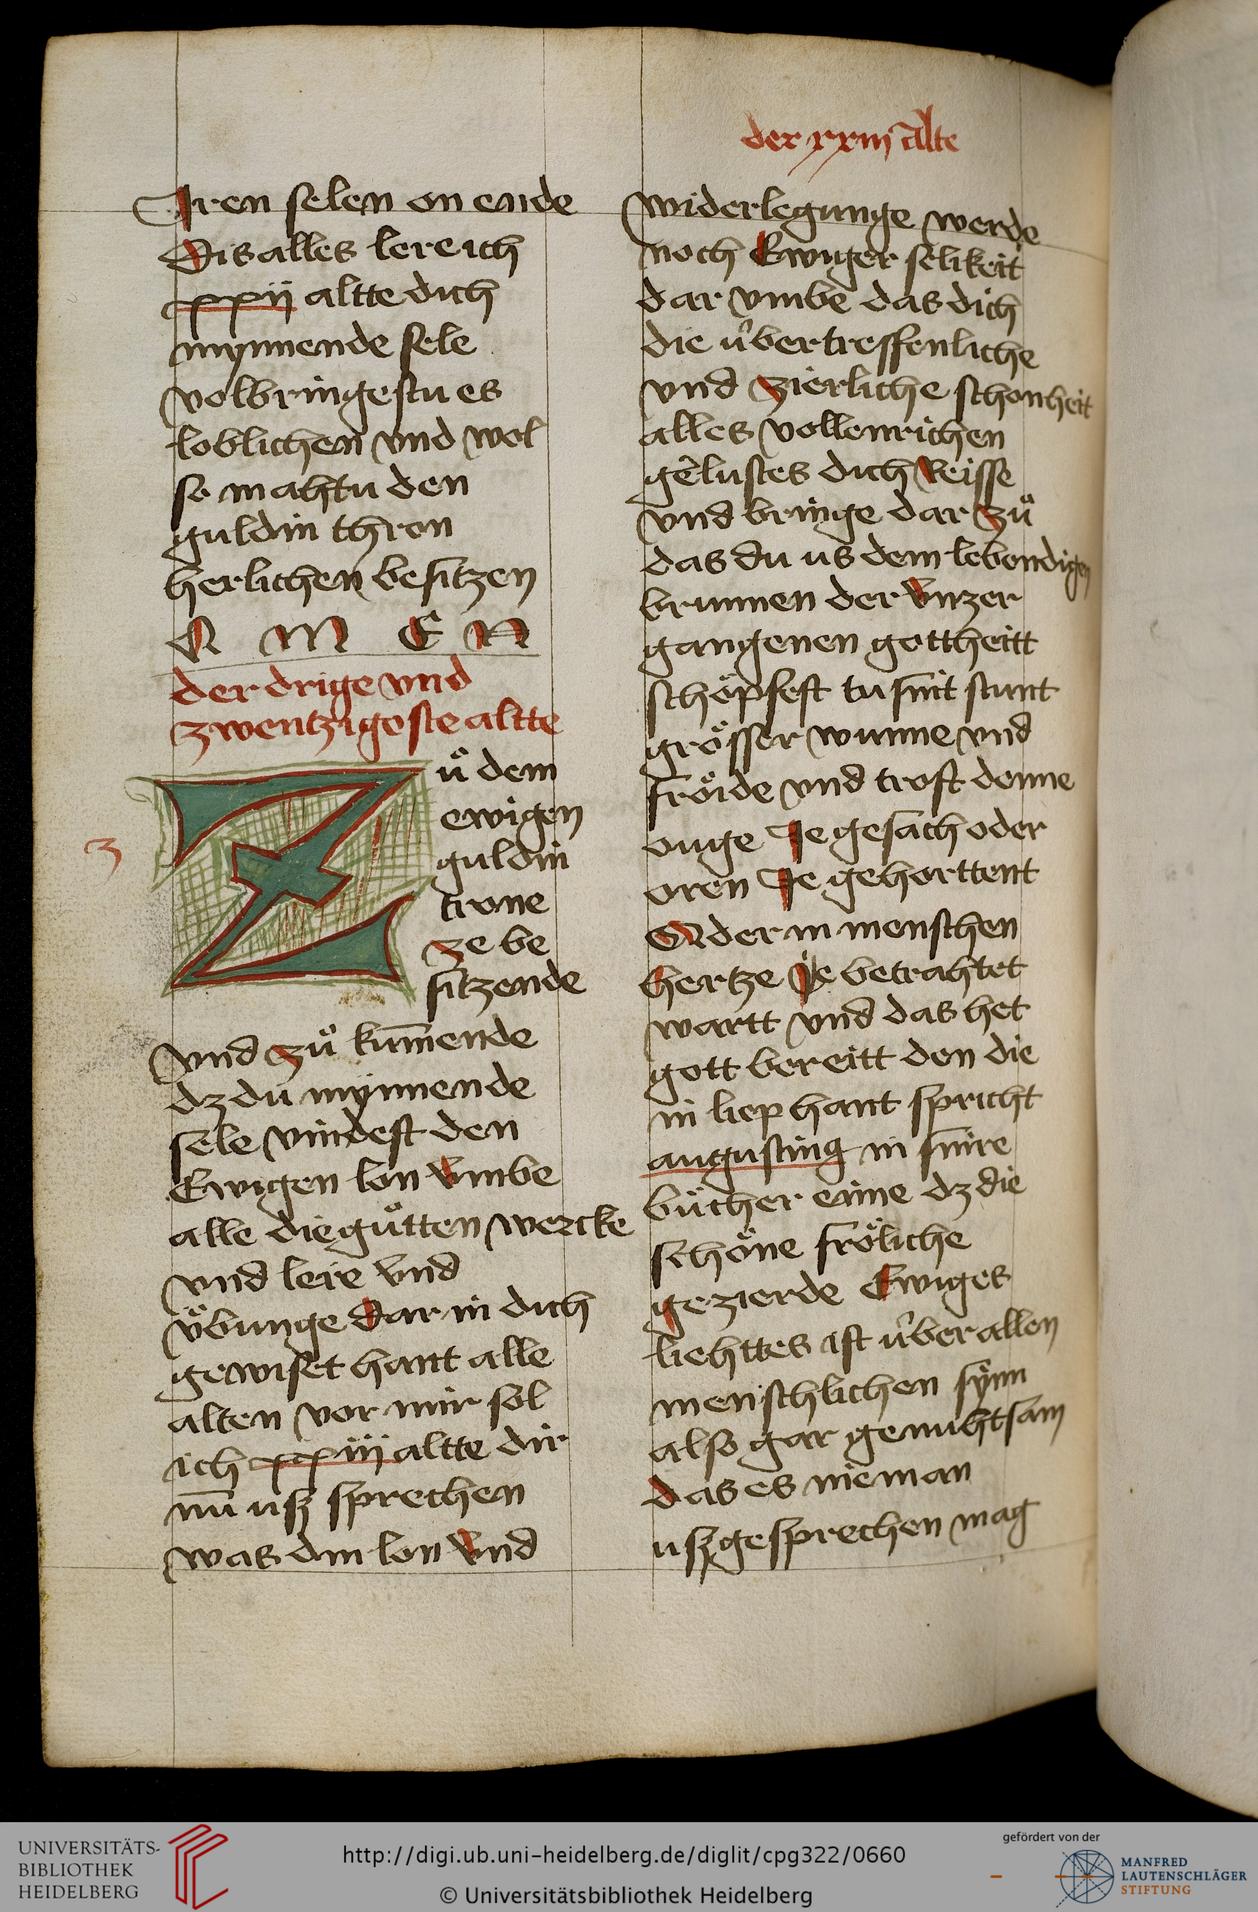 der xxiij alte
Iren selen on ende
Dis alles lere ich
xxij altte dich
mynnende sele
volbringestu es
loblichen vnd wol
so mahtu den
guldin thron
herlichen besitzen
A M E N
der drige vnd
zwentzigeste altte
Zuͦ dem
ewigen
guldin
trone
ze be
sitzende
vnd zuͦ kum̄ende
dz du mynnende
sele vindest den
Ewigen lon vmbe
alle die guͦtten wercke
vnd lere vnd
vͤbunge dar in dich
gewiset hant alle
alten vor mir sol
ich xxiij altte dir
nū usz sprechen
was din lon vnd
widerlegunge werde
noch Ewiger selikeit
dar vmbe das dich
die úbertreffenliche
vnd zierliche schonheit
alles vollenrichen
gelustes dich Reisse
vnd bringe dar zuͦ
das du us dem lebendigen
brunnen der vnzer
gangenen gottheitt
schöpfest tusint stunt
grösser wunne vnd
fröide vnd trost denne
ouge Ie gesach oder
oren Ie gehorttent
Oder in menschen
hertze Ie betrahtet
wartt vnd das het
gott bereitt den die
in liep hant spricht
augustinꝰ in sinre
buͤcher eime dz die
schöne fröliche
gezierde Ewiges
liehttes ist úber allen
menschlichen synn
also gar genuhtsam
das es nieman
usz gesprechen mag
UNIVERSITÄTS-
BIBLIOTHEK
HEIDELBERG
http://digi.ub.uni-heidelberg.de/diglit/cpg322/0660
© Universitätsbibliothek Heidelberg
gefördert von der
MANFRED
LAUTENSCHLÄGER
STIFTUNG